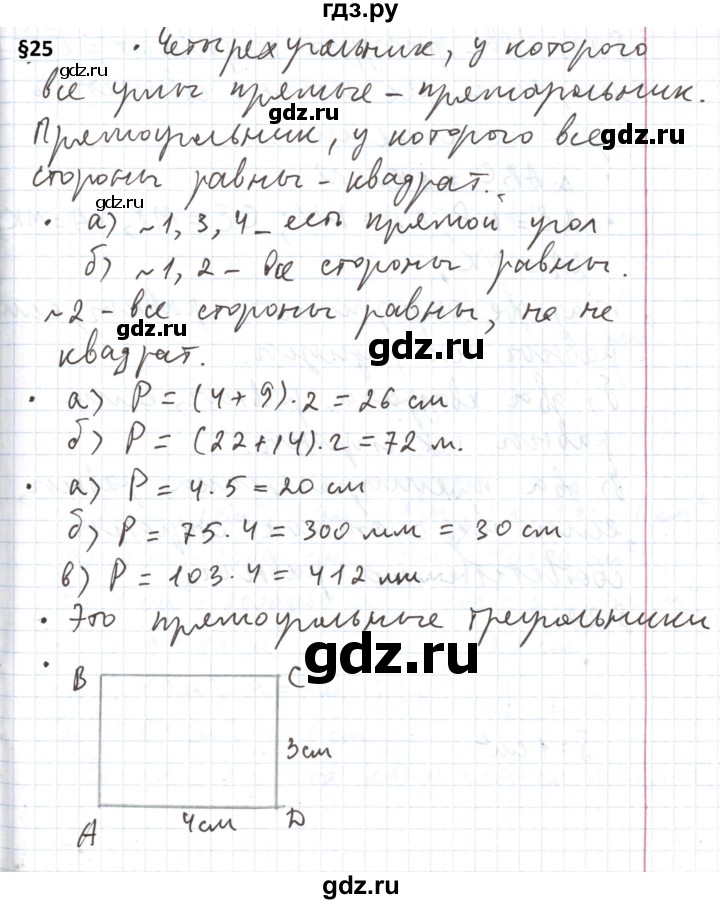 гдз.ру
§25 • Четырехугольник, у которого
все углы прямые – прямоугольник.
gdz.ru
gdz.ru
Прямоугольник, у которого все
стороны равны – квадрат.
gdz.ru
• а) ~1, 3, 4 – есть прямой угол
б) ~1, 2 – все стороны равны.
~2 – все стороны равны, но не
gdz.ru
gdz.ru
квадрат.
• а) P = (4+9)·2 = 26 см
б) P = (22+14)·2 = 72 м.
• а) P = 4·5 = 20 см
gdz.ru
б) P = 75·4 = 300 мм = 30 см
gdz.ru
в) P = 103·4 = 412 мм
• Это прямоугольные треугольники
gdz.ru
• B C
3 см
A 4 см D
gdz.ru
gdz.ru